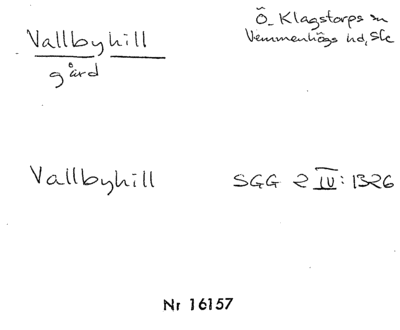 Vallbyhill
gård
Ö. Klagstorps sn
Vemmenhögs hd, Sk
Vallbyhill
SGG 2 IV: 1326
Nr 16157